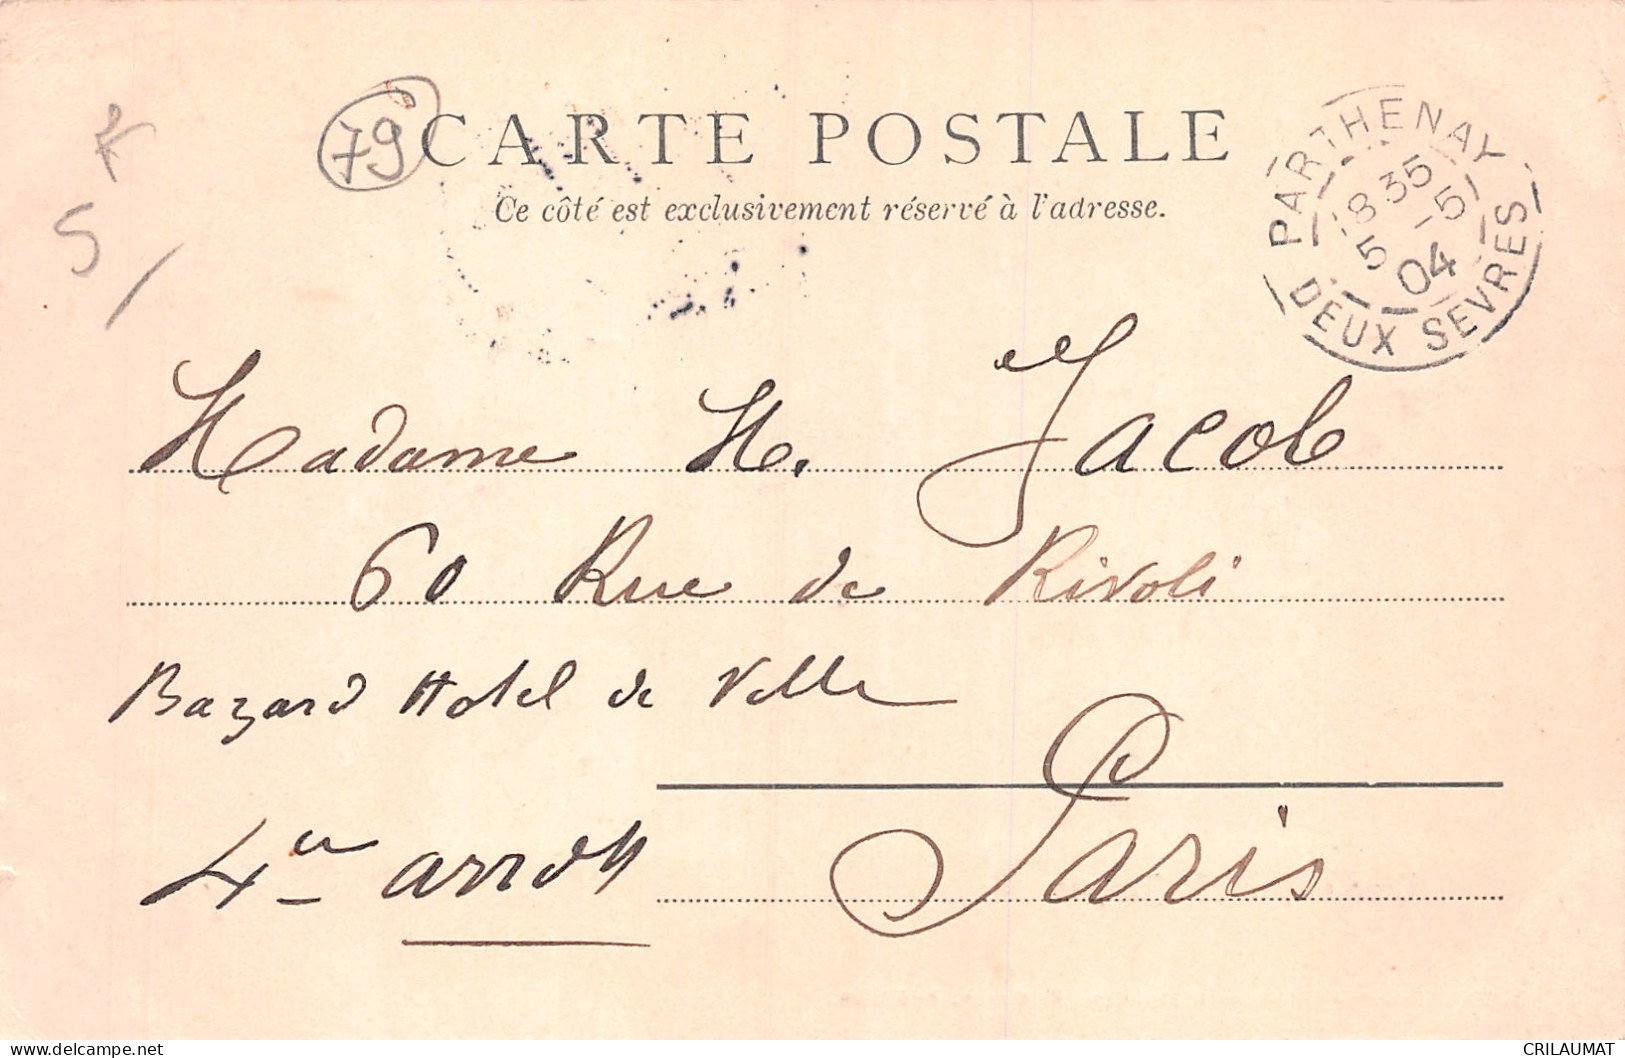 79
CARTE POSTALE
Ce côté est exclusivement réservé à l'adresse.
PARTHENAY
8 35
5 -5
04
DEUX SEVRES
5
Madame H. Jacob
60 Rue de Rivoli
Bazard Hotel de Ville
4
Paris
delcampe.net
CRILAUMAT